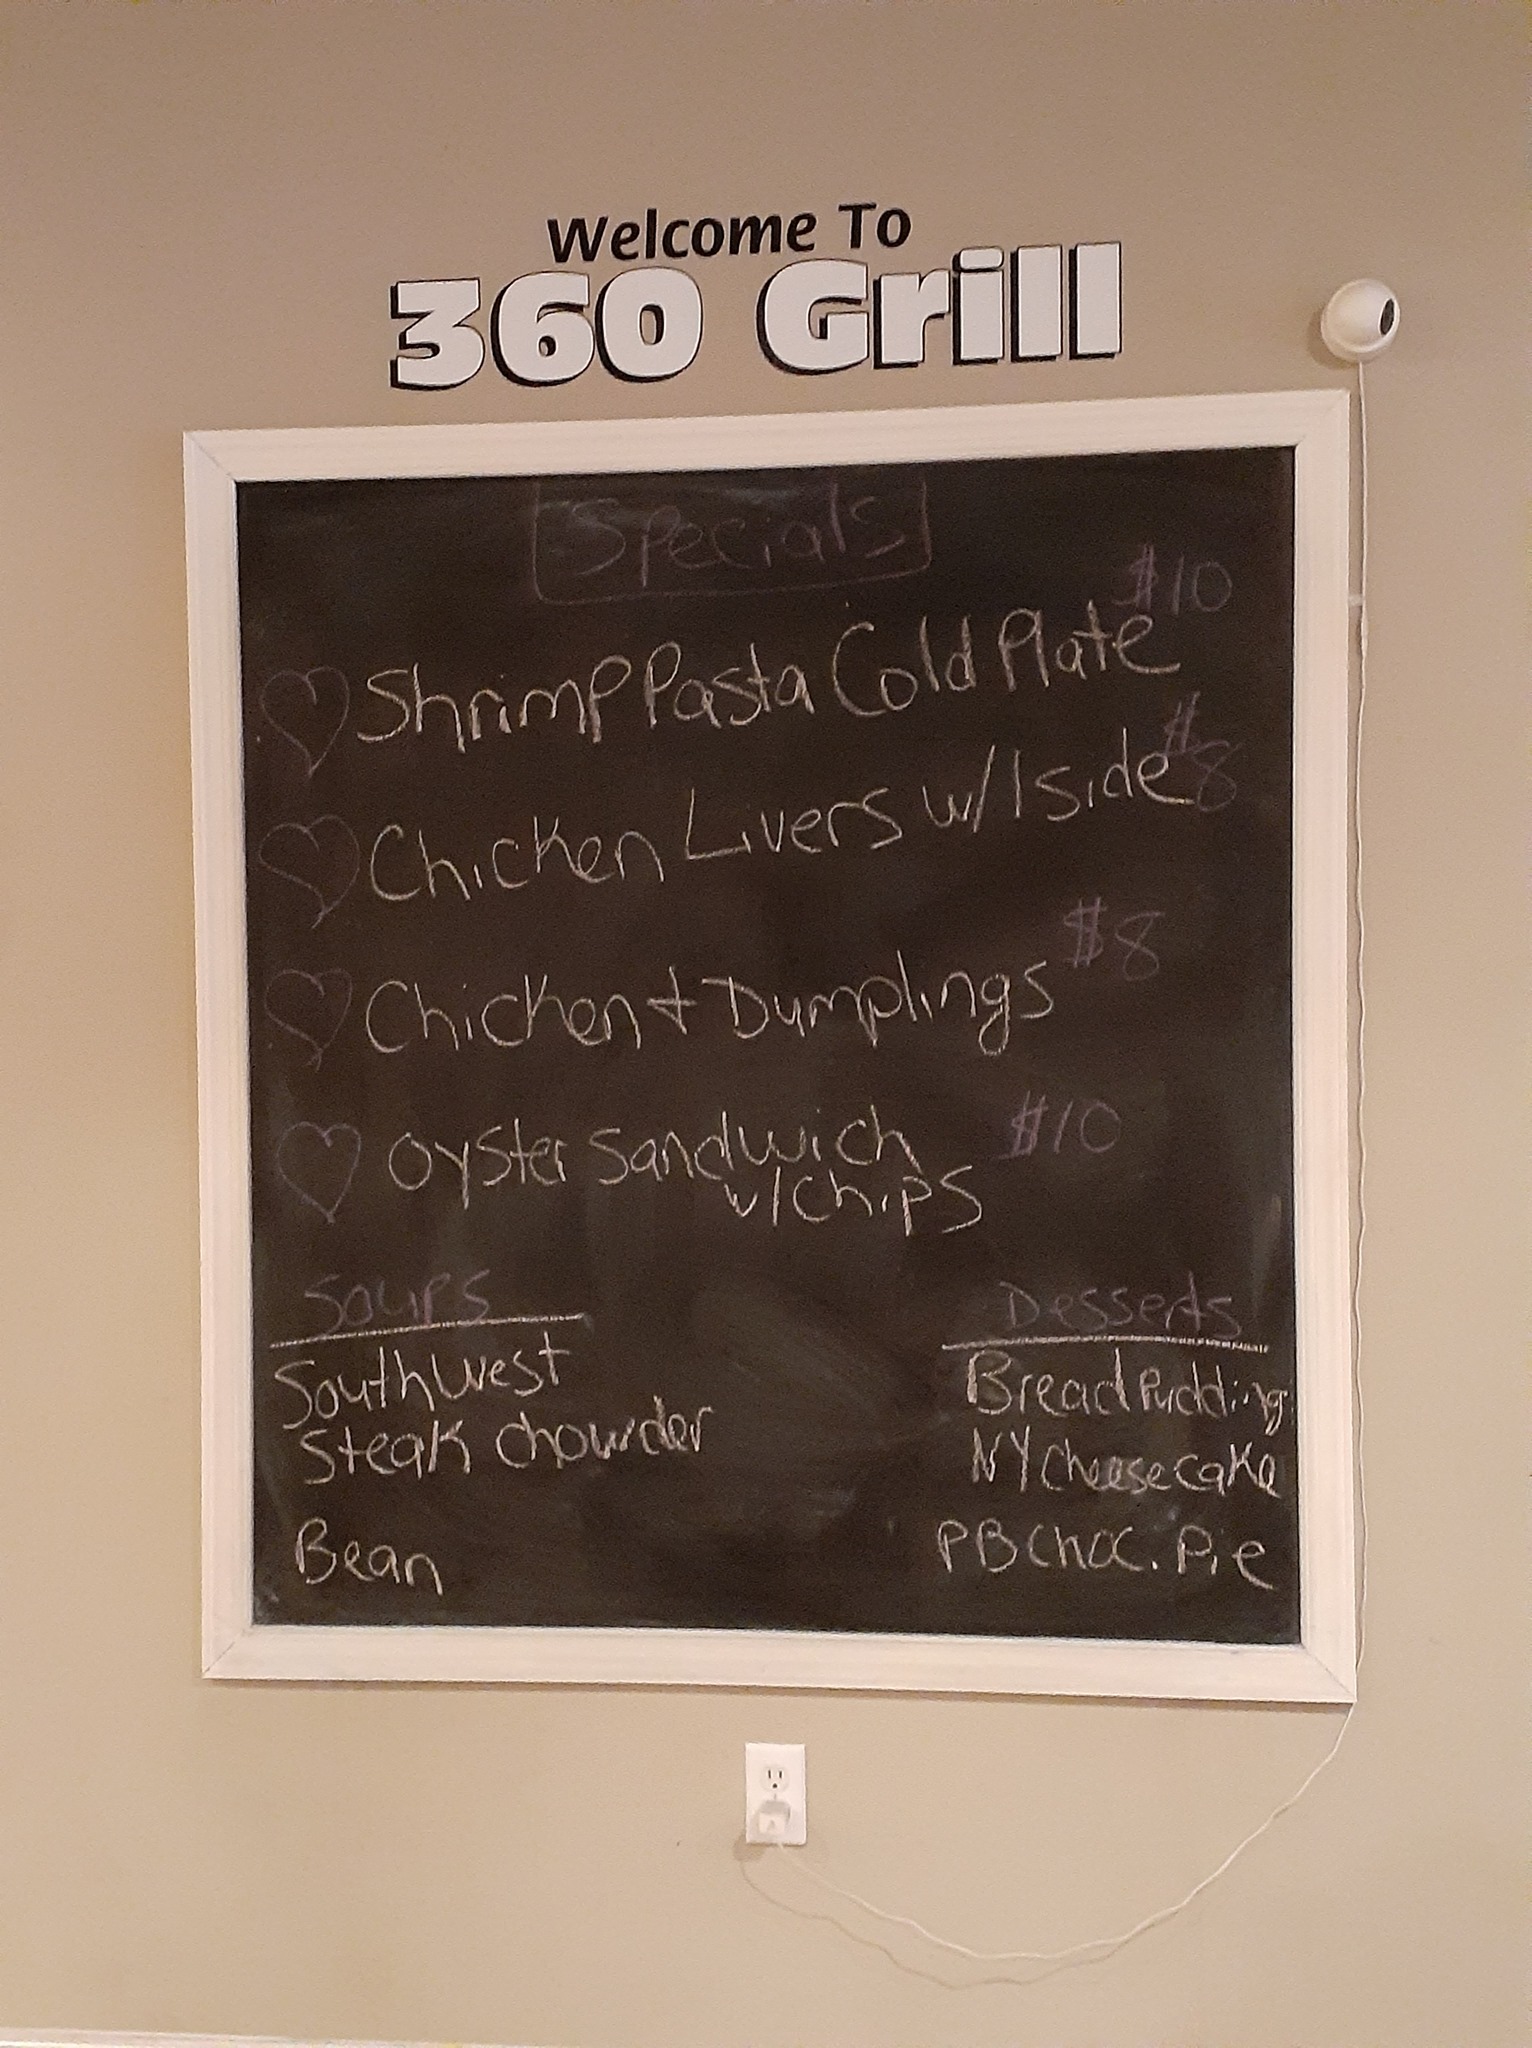 Welcome To
360 Grill
Specials
Shrimp Pasta Cold Plate $10
Chicken Livers w/1 side $8
Chicken + Dumplings $8
Oyster Sandwich $10
w/chips
Soups
Southwest
Steak Chowder
Bean
Desserts
Bread Pudding
NY Cheesecake
PB Choc. Pie